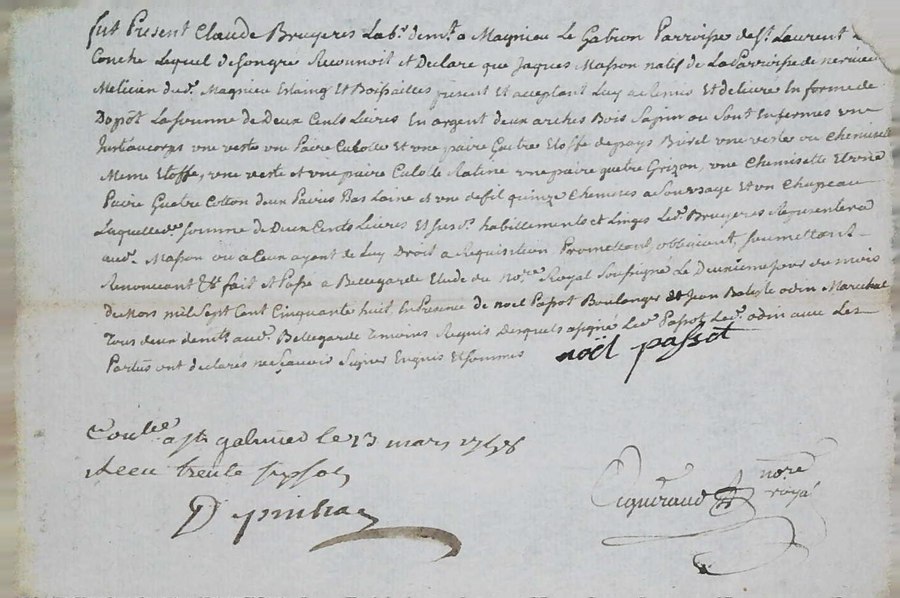 fut Present Claude Bruyeres Lab.r dem.t a Magnieu Le Gabion Parroisse de S.t Laurent L
Conche Lequel de Songré Reconnoit et Declare que Jaques Masson natif de La Parroisse de
Meticien dud. Magnieu present et acceptant Luy a remis Et delivré En forme de
Dopôt La somme de Deux Cents Livres En argent deux arches Bois Sapin ou Sont Enfermés vn
Justaucorps vne veste vne Paire Culotte et vne paire Guetre Etoffe de pays Burel vne veste ou Chemisette
Meme Etoffe, vne veste et vne paire Culotte Ratine vne paire guetre Grizon, vne Chemisette Et vne
Paire Guetre Cotton deux Paires Bas Laine et vne de fil quinze Chemises et vn Chapeau
Laquelle d. somme de Deux Cents Livres Et susd. habillements et Linges Led. Bruyeres Representera
aud. Masson ou a Ceux ayant de Luy Droit a Requisition Promettant, obligeant, soumettant
Renonceant Et fait et Passé a Bellegarde Etude du no.re Royal Soussigné Le Deuxieme jour du mois
de Mars mil Sept Cent Cinquante huit En Presence de noel Passot Boulanger et Jean Odin Marechal
Tous deux dem.ts aud. Bellegarde temoins Requis Desquels a signé Led. Passot Led. Odin avec Les
Parties ont declarés ne Sçavoir Signer Enquis Et sommés
noël passot
Con.lee a S.t galmier le 13 mars 1758
Receu trente sols
no.re
royal